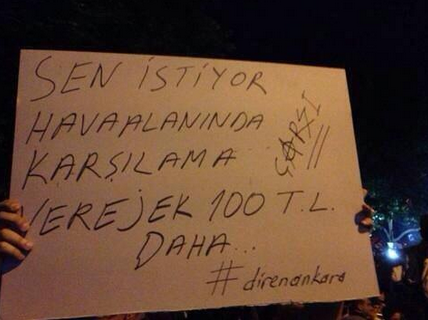 SEN İSTİYOR
HAVAALANINDA
KARŞILAMA
ÇARŞI
VEREJEK 100 T.L.
DAHA...
#direnankara